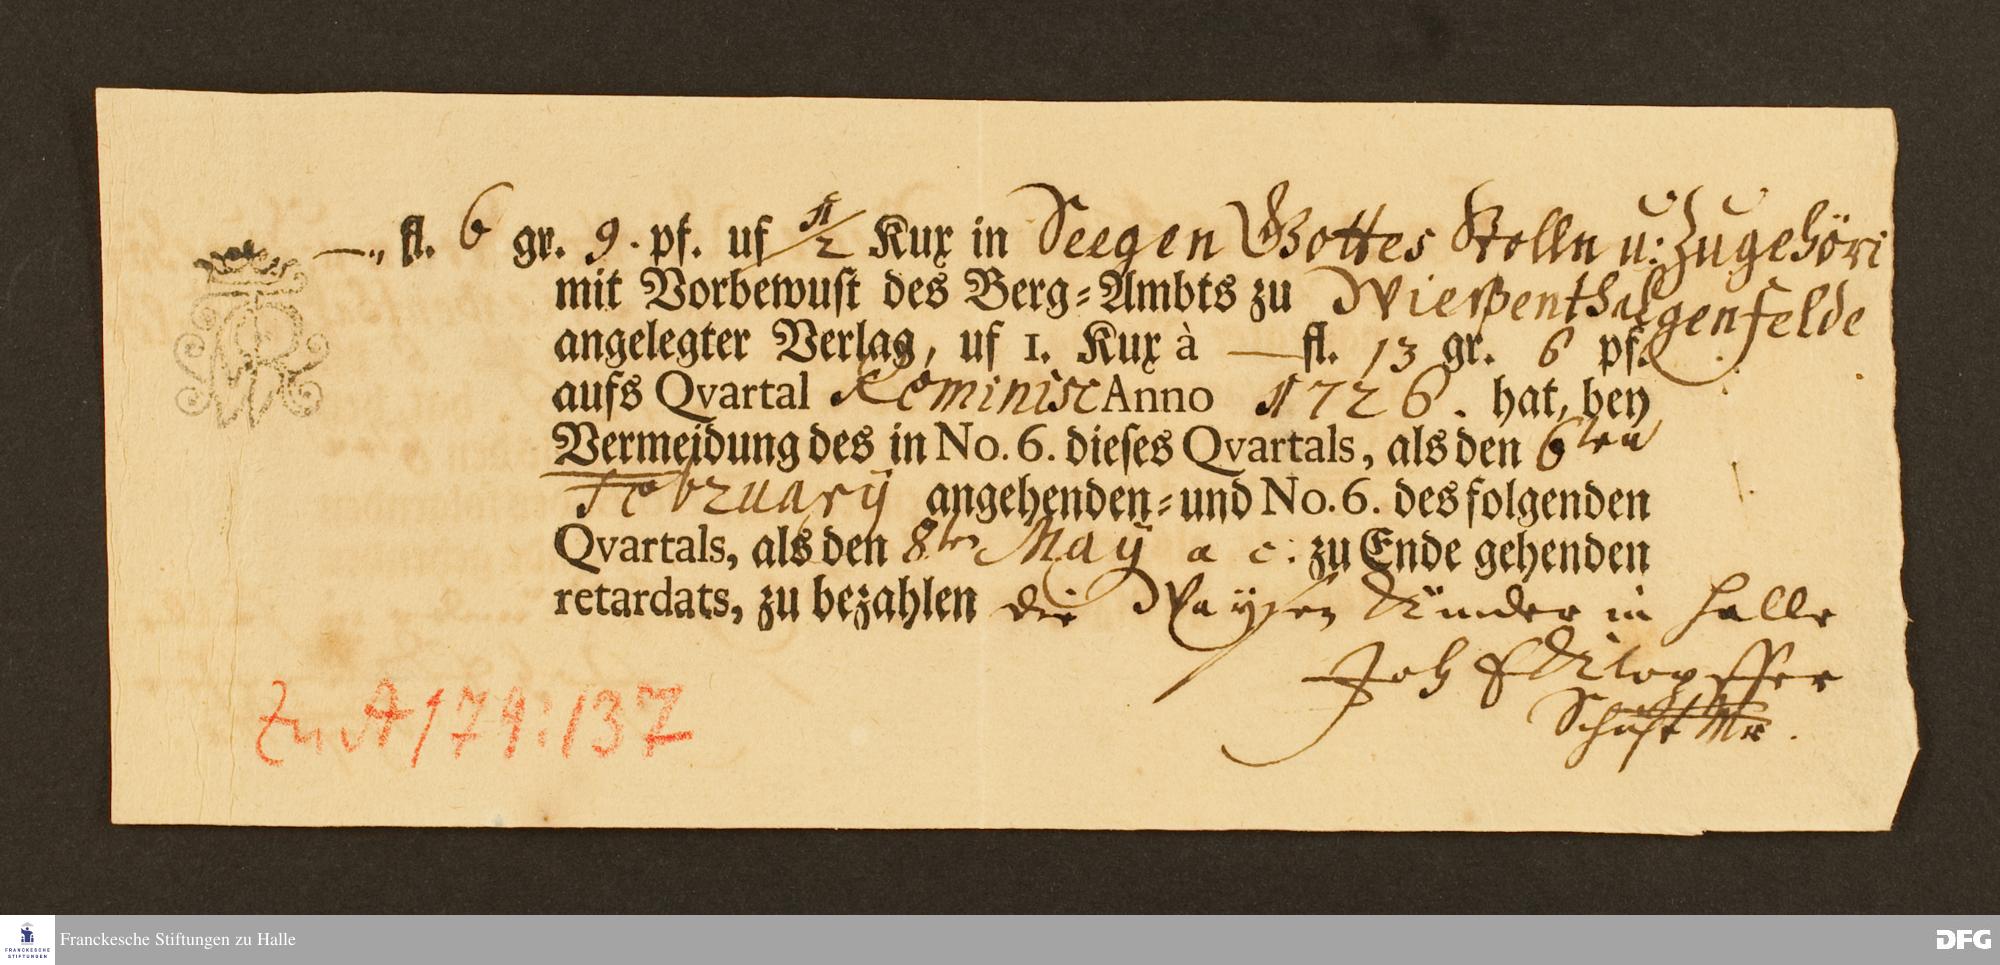 —, fl. 6 gr. 9. pf. uf 1/2 Kux in Seegen Gottes Stolln u: Zugehöri
genfelde
mit Vorbewust des Berg-Ambts zu Wießenthal
angelegter Verlag, uf 1. Kux à — fl. 13 gr. 6 pf.
aufs Qvartal Reminisc Anno 1726. hat, bey
Vermeidung des in No. 6. dieses Qvartals, als den 6ten
February angehenden- und No. 6. des folgenden
Qvartals, als den 8ten Maÿ a c: zu Ende gehenden
retardats, zu bezahlen die Waÿsen Kinder in Halle
Joh Klopffer
SchichtMr.
Zu A 174:137
Franckesche Stiftungen zu Halle
FRANCKESCHE
STIFTUNGEN
DFG